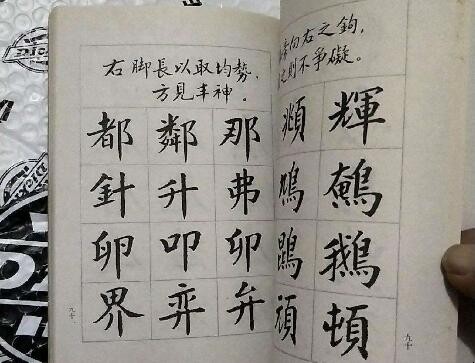 向右之鉤，
之則不爭礙。
頫 輝
鵪
鵝
頓
九十
右脚長以取均勢，
方見丰神。
都 鄰 那
針 升 弗
卵 叩 卯
界 弈 弁
九十